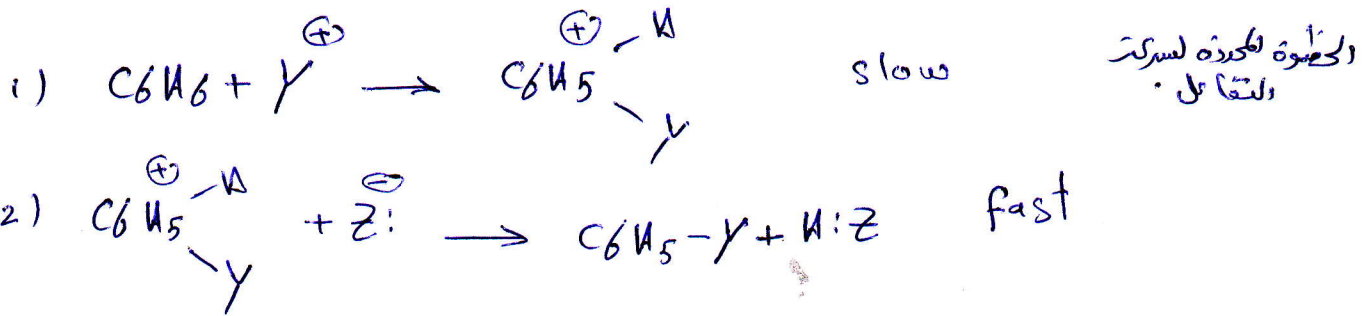 1) C6H6 + Y⊕ → C6H5⊕ H Y slow الخطوة المحددة لسرعة
التفاعل .
2) C6H5⊕ H Y + Z:⊖ → C6H5-Y + H:Z fast